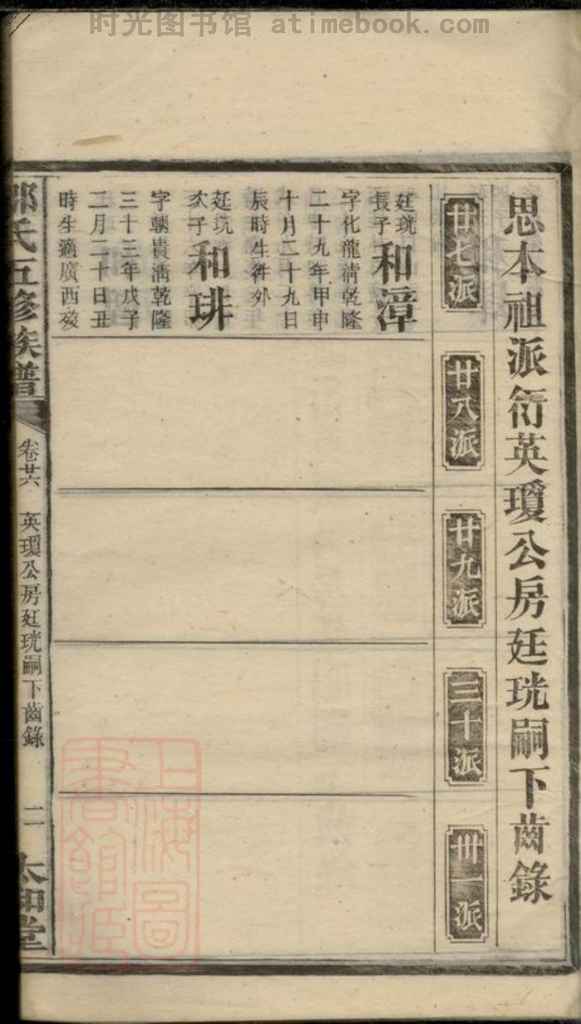 时光图书馆 atimebook.com
思本祖派衍英瓊公房廷珖嗣下齒錄
廿七派
廿八派
廿九派
三十派
卅一派
廷珖長子
和漳
字化龍清乾隆
二十九年甲申
十月二十九日
辰時生徃外
廷珖次子
和琲
字朝貴清乾隆
三十三年戊子
二月二十日丑
時生適廣西歿
氏五修族譜
卷廿六
英瓊公房廷珖嗣下齒錄
二
太和堂
上海圖書館